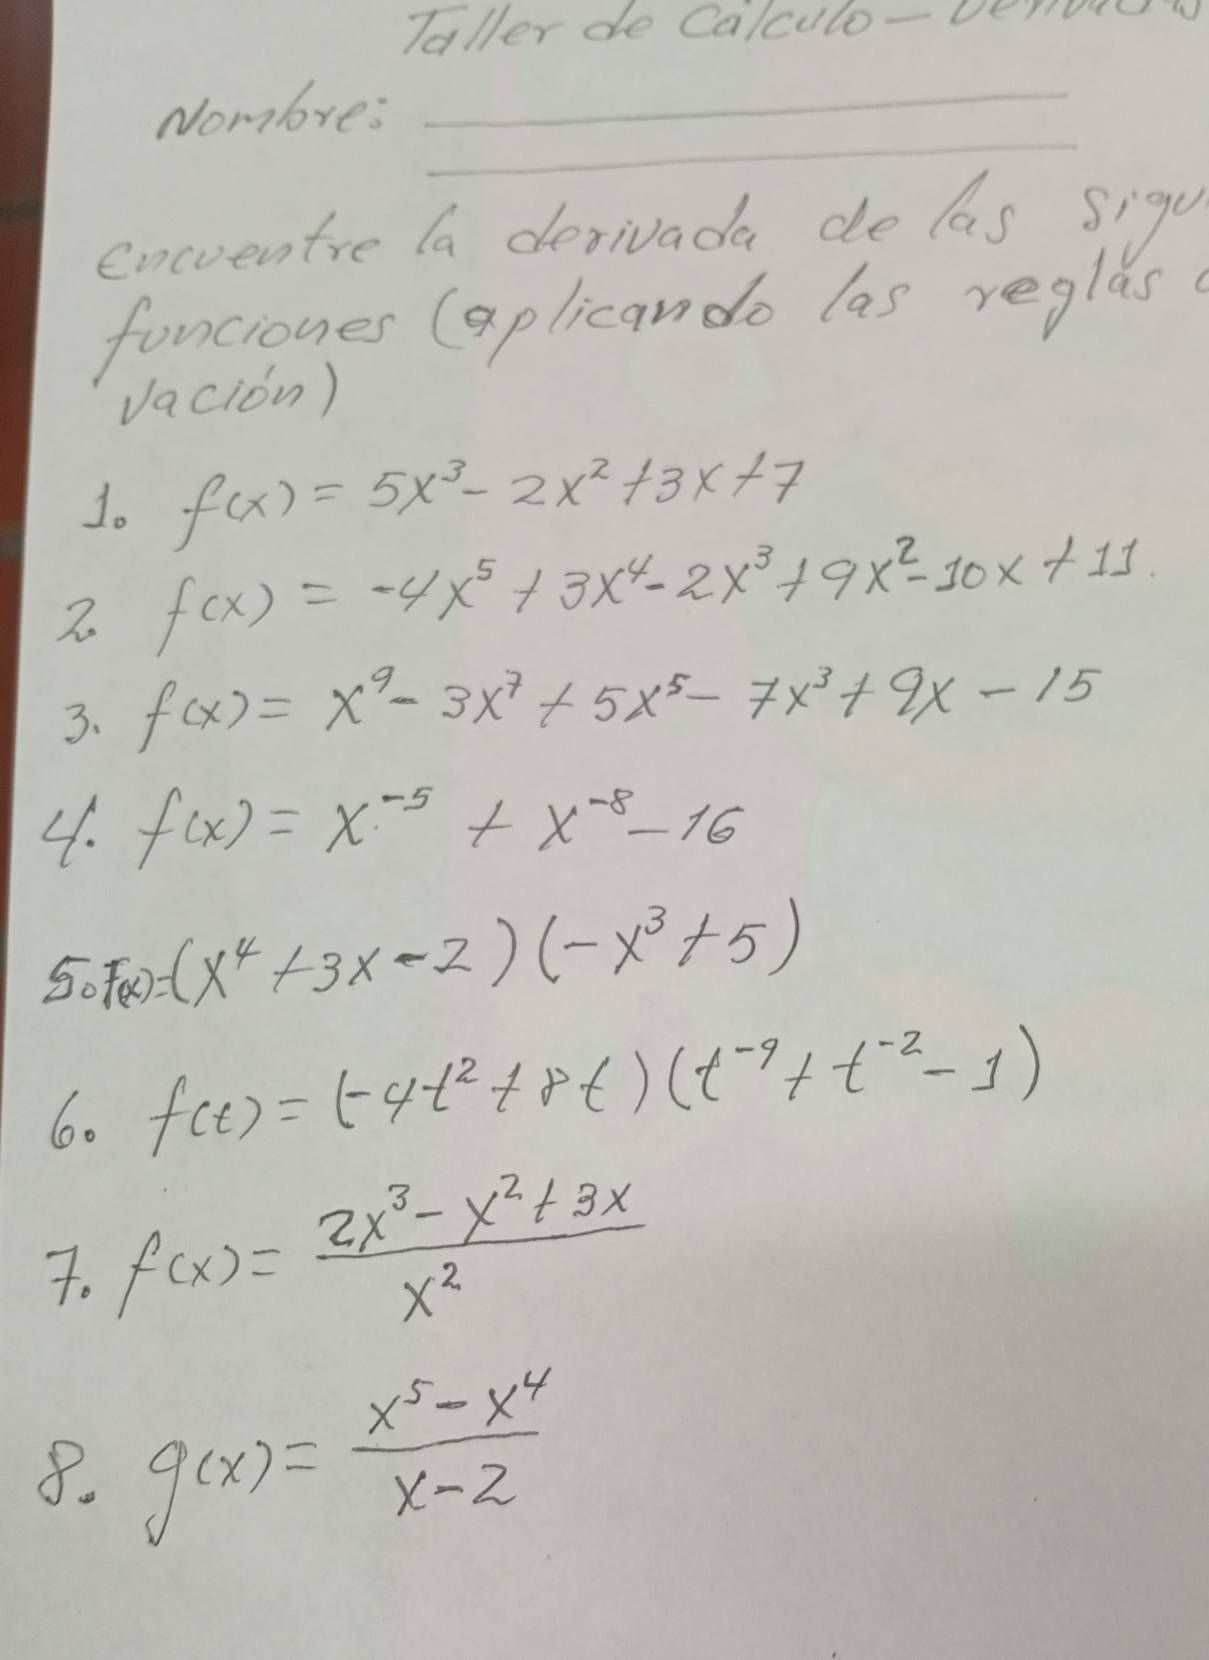 Taller de Cálculo -
Nombre:
Encuentre la derivada de las
funciones (aplicando las reglas
vación)
1. f(x) = 5x³ - 2x² + 3x + 7
2. f(x) = -4x⁵ + 3x⁴ - 2x³ + 9x² - 10x + 11.
3. f(x) = x⁹ - 3x⁷ + 5x⁵ - 7x³ + 9x - 15
4. f(x) = x⁻⁵ + x⁻⁸ - 16
5. f(x) = (x⁴ + 3x - 2)(-x³ + 5)
6. f(t) = (-4t² + 8t)(t⁻⁹ + t⁻² - 1)
7. f(x) = (2x³ - x² + 3x)/x²
8. g(x) = (x⁵ - x⁴)/(x - 2)